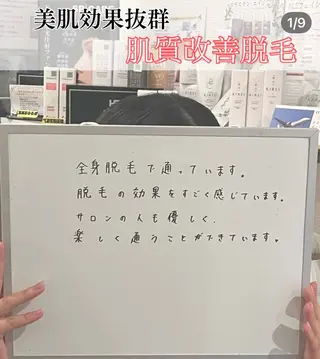 美肌効果抜群
1/9
肌質改善脱毛
全身脱毛で通っています。
脱毛の効果をすごく感じています。
サロンの人も優しく、
楽しく通うことができています。